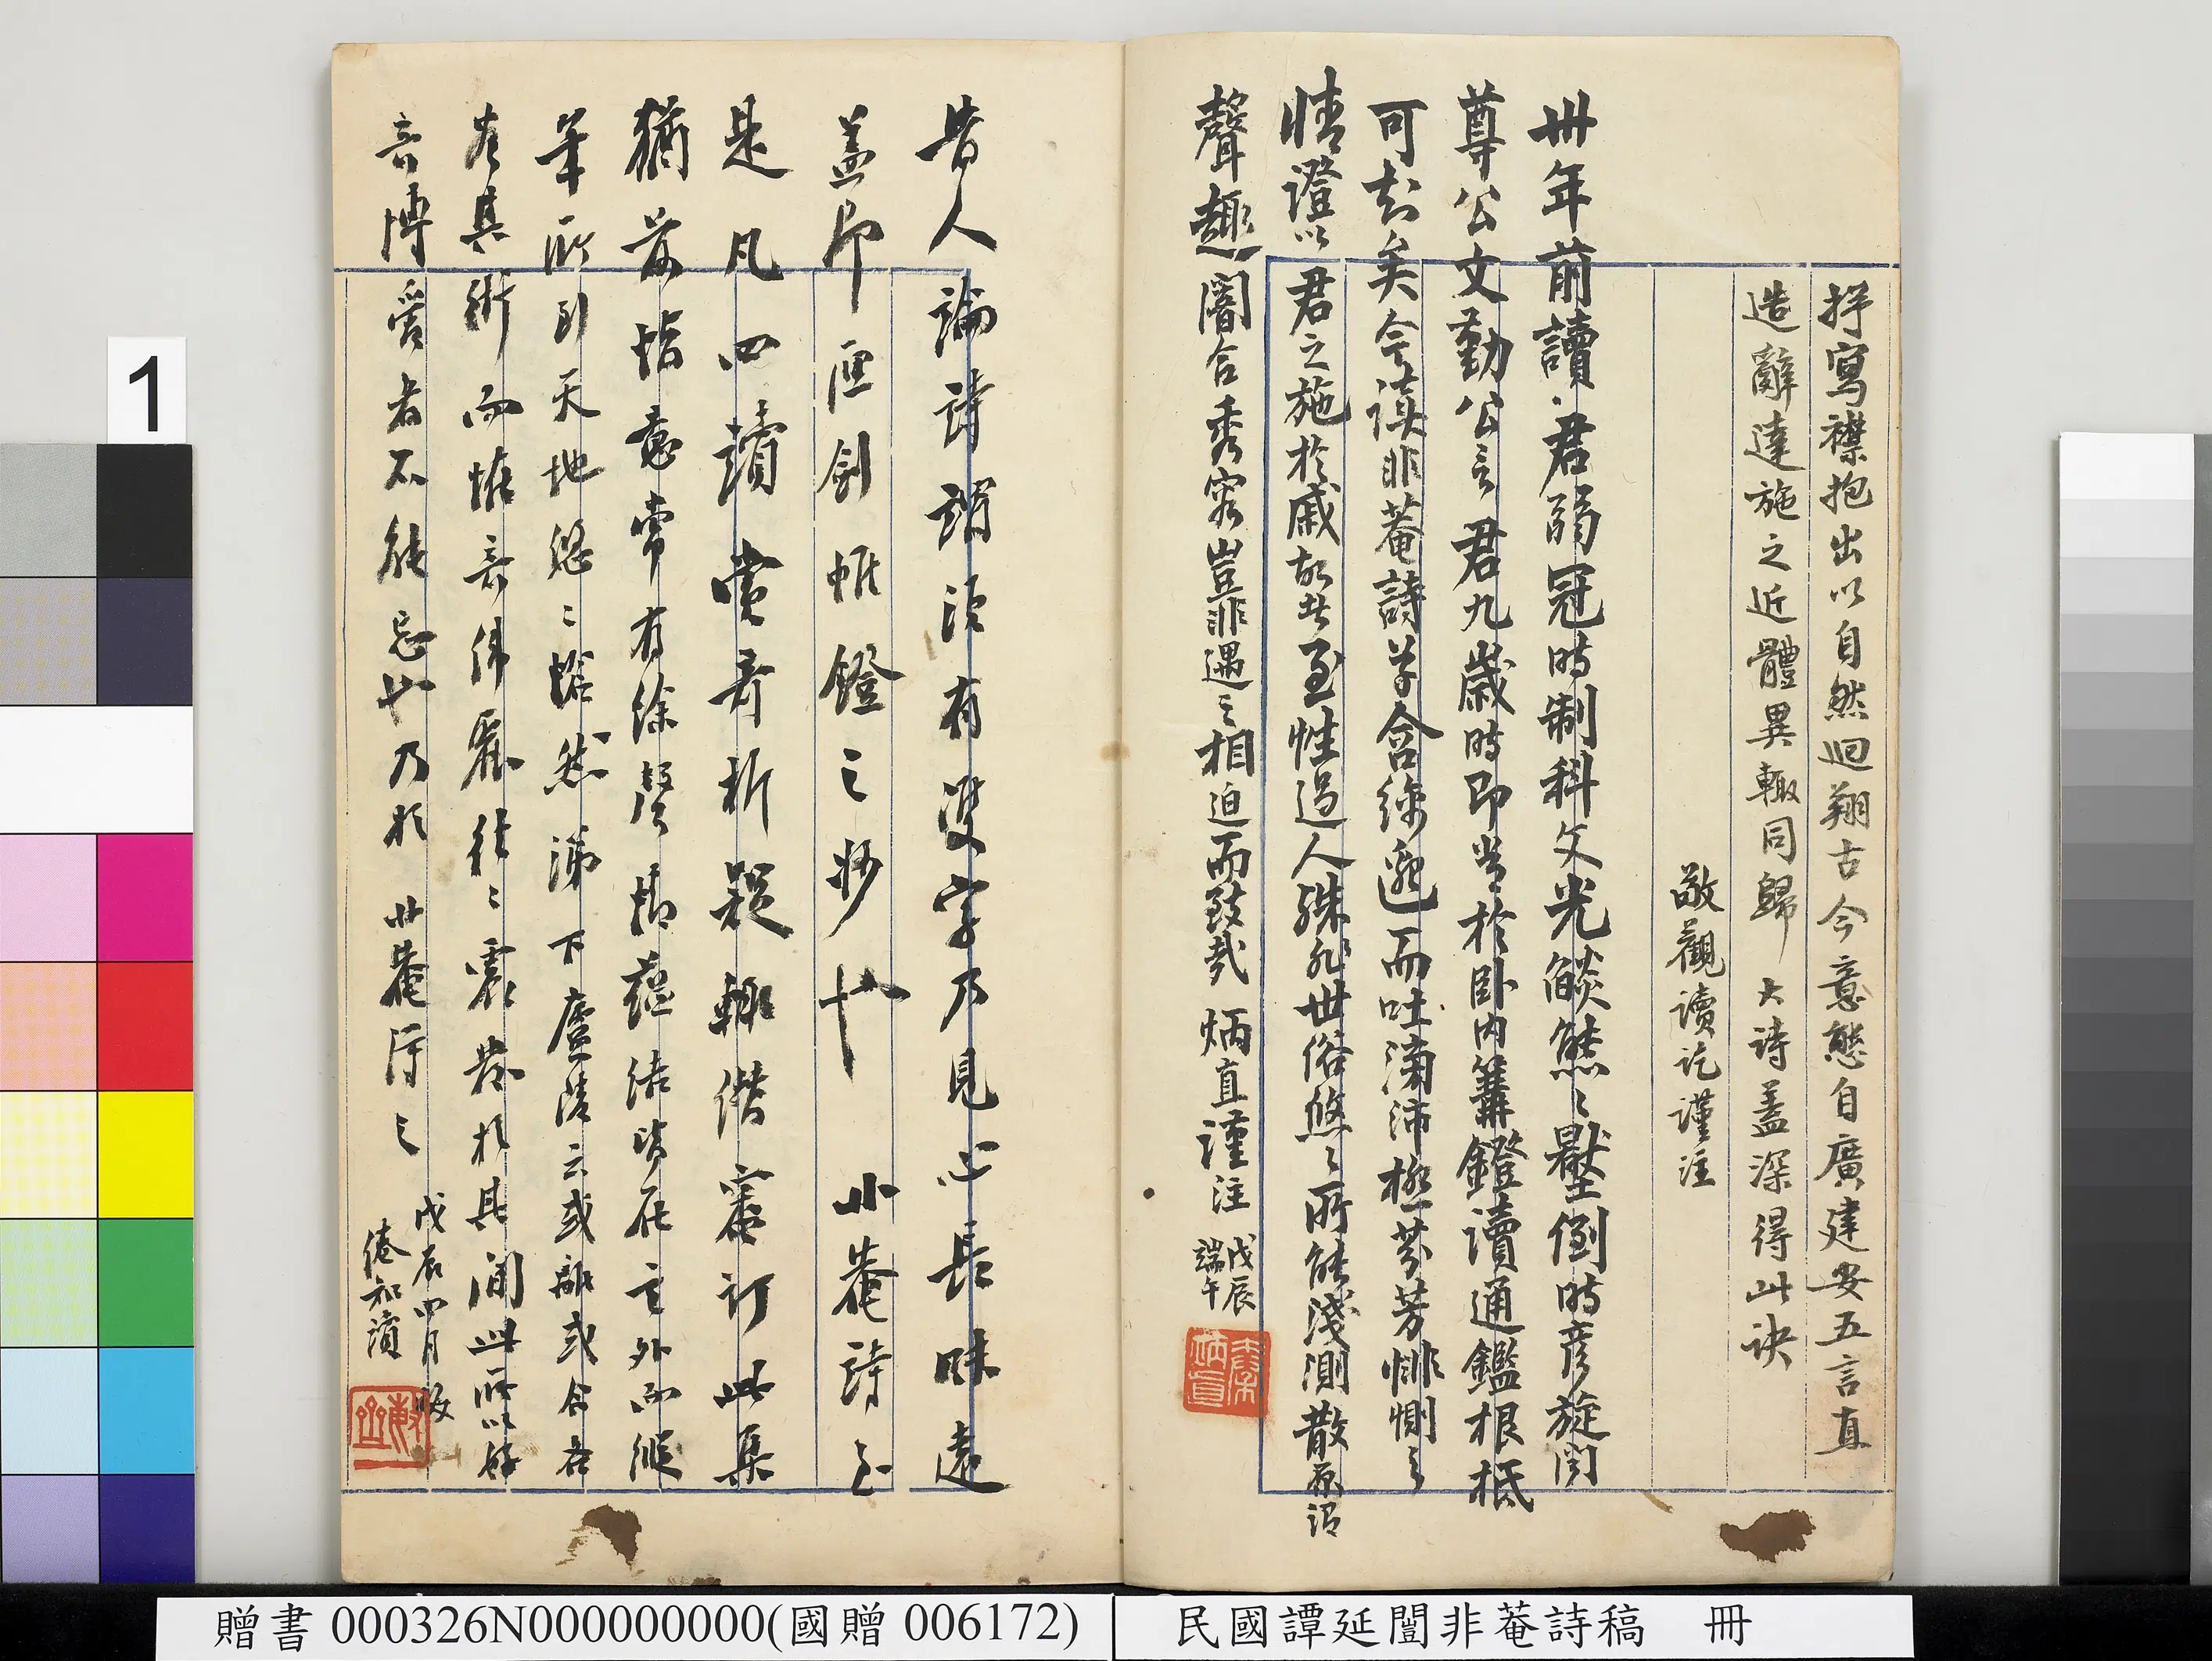 抒寫襟抱出以自然迴翔古今意態自廣建安五言直
造辭達施之近體異轍同歸 大詩蓋深得此訣
敬觀讀訖謹注
卅年前讀君弱冠時制科文光燄熊〻壓倒時彥旋聞
尊公文勤公言君九歲時即嘗於臥內篝鐙讀通鑑根柢
可知矣今讀非菴詩草含綿邈而吐滂沛極芬芳悱惻之
情證以君之施於戚故者至性過人殊非世俗悠〻所能淺測散原謂
聲趣闇合秀容豈非遇之相迫而致哉 炳直謹注 戊辰
端午
昔人論詩謂須有雙字乃見心長味遠
蓋即匣劍帷鐙之妙也 非菴詩之
是凡四讀賞奇析疑輒僭審訂此集
猶前恉意常有徐聲情蘊結皆在言外而縱
筆所到天地悠〻愴然涕下廬陵云或離或合吾
有其術而惟吾佛愿往〻震發於其間此所以好
吾博愛者不能忘也乃於非菴得之
戊辰四月
倦知讀
1
贈書 000326N000000000(國贈 006172)
民國譚延闓非菴詩稿 冊